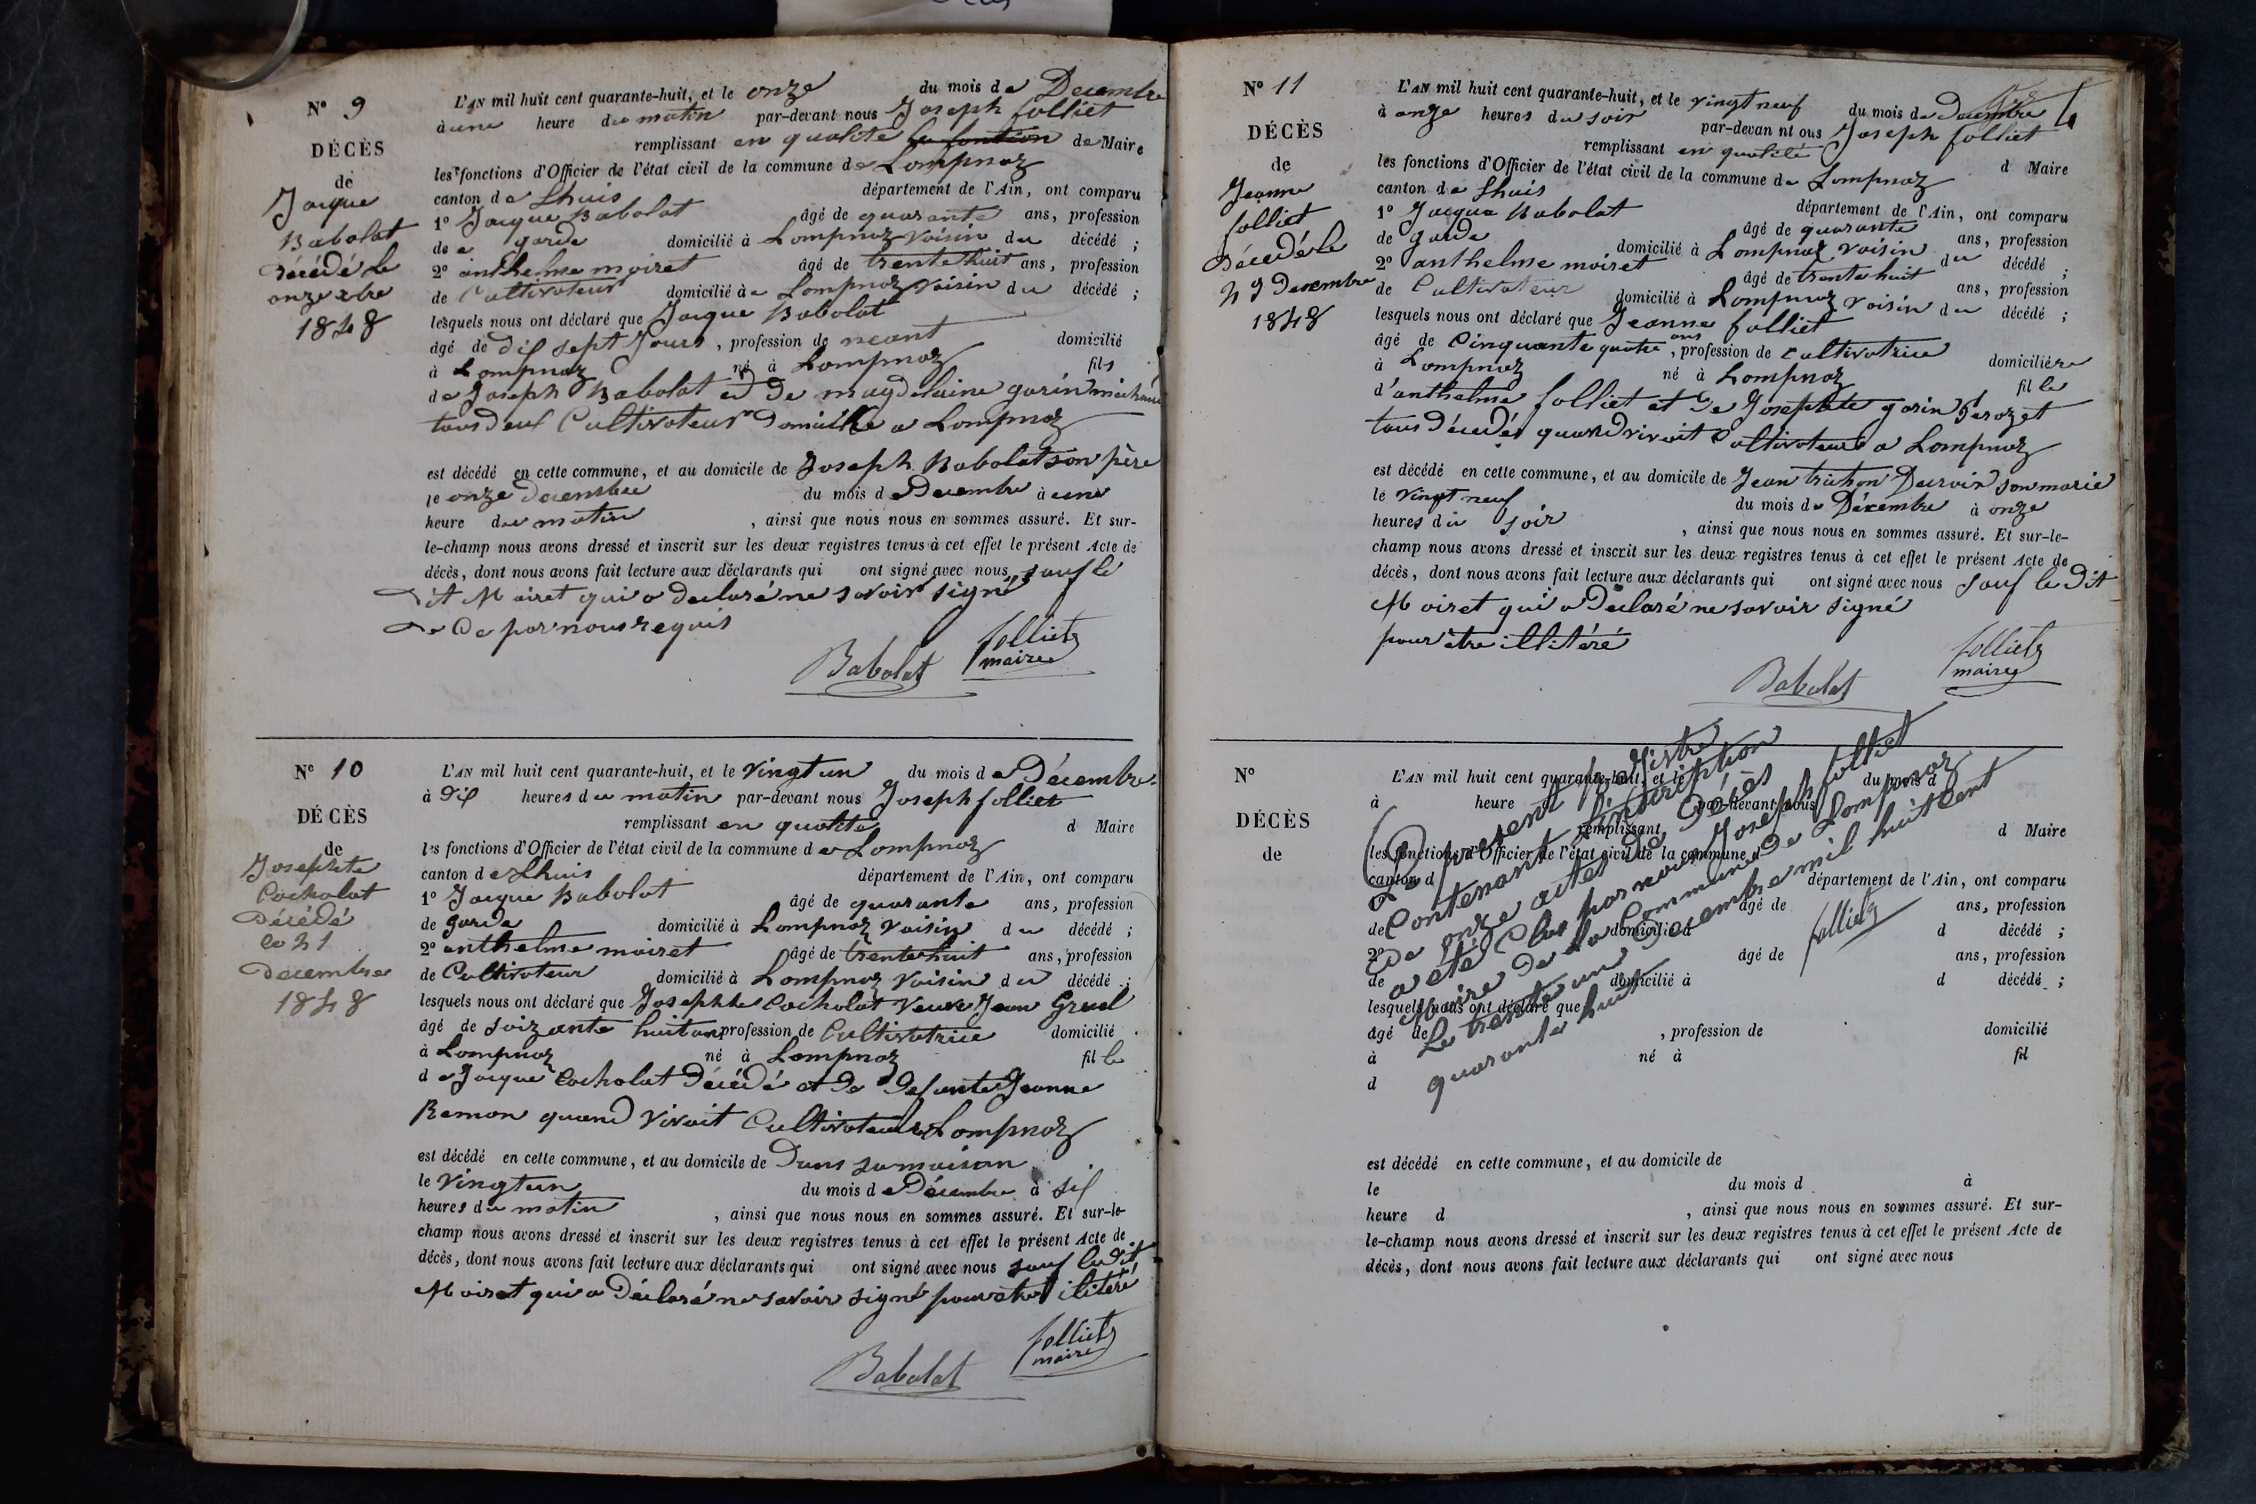 Nº 9
DÉCÈS
de
Jacque
Babolat
Décédé le
onze xbre
1848
L'AN mil huit cent quarante-huit, et le onze du mois de Decembre
à une heure du matin par-devant nous Joseph folliet
remplissant en qualité de Maire
les fonctions d'Officier de l'état civil de la commune de Lompnaz
canton de Lhuis département de l'Ain, ont comparu
1º Jacque Babolat âgé de quarante ans, profession
de garde domicilié à Lompnaz voisin du décédé ;
2º anthelme moiret âgé de trente huit ans, profession
de Cultivateur domicilié à Lompnaz voisin du décédé ;
lesquels nous ont déclaré que Jacque Babolat
âgé de dix sept Jours, profession de neant domicilié
à Lompnaz né à Lompnaz fils
de Joseph Babolat et de magdelaine garin
tous deux Cultivateur Domicilié a Lompnaz
est décédé en cette commune, et au domicile de Joseph Babolat son père
le onze decembre du mois de Decembre à une
heure du matin, ainsi que nous nous en sommes assuré. Et sur-
le-champ nous avons dressé et inscrit sur les deux registres tenus à cet effet le présent Acte de
décès, dont nous avons fait lecture aux déclarants qui ont signé avec nous sauf le
dit Moiret qui a declaré ne savoir signé
de ce par nous requis
Babolat folliet
maire
Nº 10
DÉCÈS
de
Josephte
Cocholat
Décédé
le 21
Decembre
1848
L'AN mil huit cent quarante-huit, et le vingt un du mois de Décembre
à dix heures du matin par-devant nous Joseph folliet
remplissant en qualité d Maire
les fonctions d'Officier de l'état civil de la commune de Lompnaz
canton de Lhuis département de l'Ain, ont comparu
1º Jacque Babolat âgé de quarante ans, profession
de garde domicilié à Lompnaz voisin du décédé ;
2º anthelme moiret âgé de trente huit ans, profession
de Cultivateur domicilié à Lompnaz voisin du décédé ;
lesquels nous ont déclaré que Josephte Cocholat veuve Jean Gruel
âgé de soizante huit ans profession de Cultivatrice domicilié
à Lompnaz né à Lompnaz fille
de Jacque Cocholat Décédé et de defunte Jeanne
Remon quand vivait Cultivateur a Lompnaz
est décédé en cette commune, et au domicile de Dans sa maison
le vingt un du mois de Décembre à six
heures du matin, ainsi que nous nous en sommes assuré. Et sur-le-
champ nous avons dressé et inscrit sur les deux registres tenus à cet effet le présent Acte de
décès, dont nous avons fait lecture aux déclarants qui ont signé avec nous sauf le dit
Moiret qui a Déclaré ne savoir signé pour être ilitéré
Babolat folliet
maire
Nº 11
DÉCÈS
de
Jeanne
folliet
Décédé le
29 Decembre
1848
L'AN mil huit cent quarante-huit, et le vingt neuf du mois de Decembre
à onze heures du soir par-devan nt ous Joseph folliet
remplissant en qualité d Maire
les fonctions d'Officier de l'état civil de la commune de Lompnaz
canton de Lhuis département de l'Ain, ont comparu
1º Jacque Babolat âgé de quarante ans, profession
de garde domicilié à Lompnaz voisin du décédé ;
2º anthelme moiret âgé de trente huit ans, profession
de Cultivateur domicilié à Lompnaz voisin du décédé ;
lesquels nous ont déclaré que Jeanne folliet
âgé de Cinquante quatre ans, profession de cultivatrice domiciliére
à Lompnaz né à Lompnaz fille
d'anthelme folliet et de Josephte garin Perozet
tous décédés quand vivait Cultivateurs a Lompnaz
est décédé en cette commune, et au domicile de Jean son marie
le vingt neuf du mois de Décembre à onze
heures du soir, ainsi que nous nous en sommes assuré. Et sur-le-
champ nous avons dressé et inscrit sur les deux registres tenus à cet effet le présent Acte de
décès, dont nous avons fait lecture aux déclarants qui ont signé avec nous sauf le dit
Moiret qui a Déclaré ne savoir signé
pour être illitéré
Babolat folliet
maire
Nº
DÉCÈS
de
L'AN mil huit cent quarante-huit, et le du mois d
à heure par-devant nous
remplissant d Maire
les fonctions d'Officier de l'état civil de la commune d
canton d département de l'Ain, ont comparu
de âgé de ans, profession
domicilié à d décédé ;
2º âgé de ans, profession
de domicilié à d décédé ;
lesquels nous ont déclaré que
âgé de , profession de domicilié
à né à fil
d
Le present registre
Contenant L'inscription
De onze actes de Décès
a été Clos par nous Joseph folliet
Maire de la Commune de Lompnaz
Le trente un Decembre mil huit cent
quarante huit
folliet
est décédé en cette commune, et au domicile de
le du mois d à
heure d , ainsi que nous nous en sommes assuré. Et sur-
le-champ nous avons dressé et inscrit sur les deux registres tenus à cet effet le présent Acte de
décès, dont nous avons fait lecture aux déclarants qui ont signé avec nous